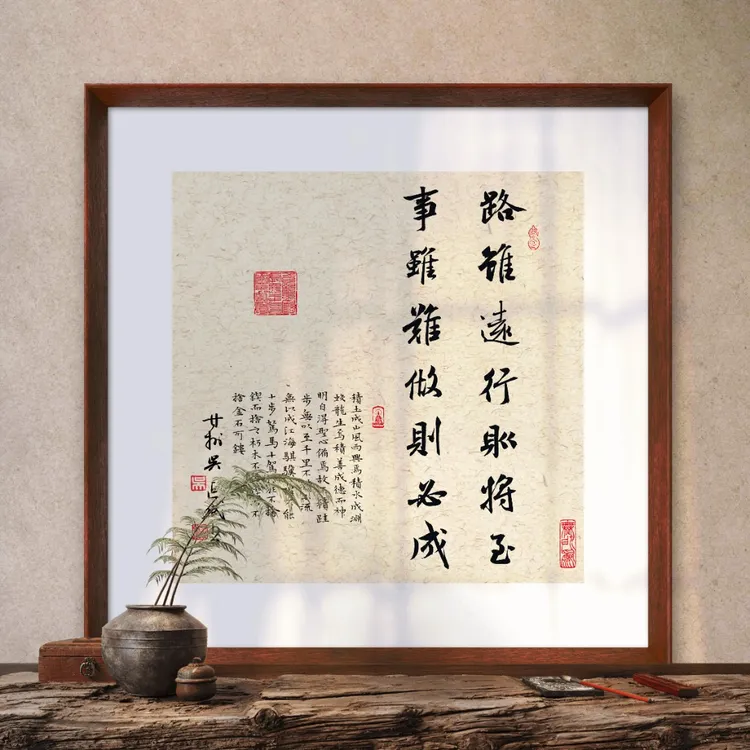 路雖遠行則將至
事雖難做則必成
積土成山風雨興焉積水成淵
蛟龍生焉積善成德而神
明自得聖心備焉故不積跬
步無以至千里不流
無以成江海騏驥能
十步駑馬十駕不捨
鍥而捨之朽木不不
捨金石可鏤
甘州吳